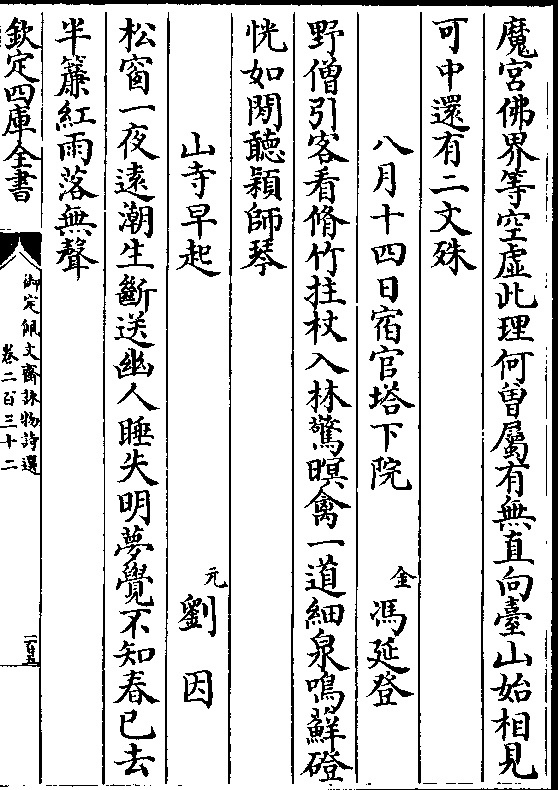 魔宮佛界等空虛此理何曽屬有無直向臺山始相見
可中還有二文殊
八月十四日宿官塔下院 金 馮延登
野僧引客看脩竹拄杖入林驚暝禽一道細泉鳴鮮磴
恍如閑聽穎師琴
山寺早起 元 劉因
松窗一夜遠潮生斷送幽人睡失明夢覺不知春已去
半簾紅雨落無聲
欽定四庫全書
御定佩文齋詠物詩選
卷二百三十二